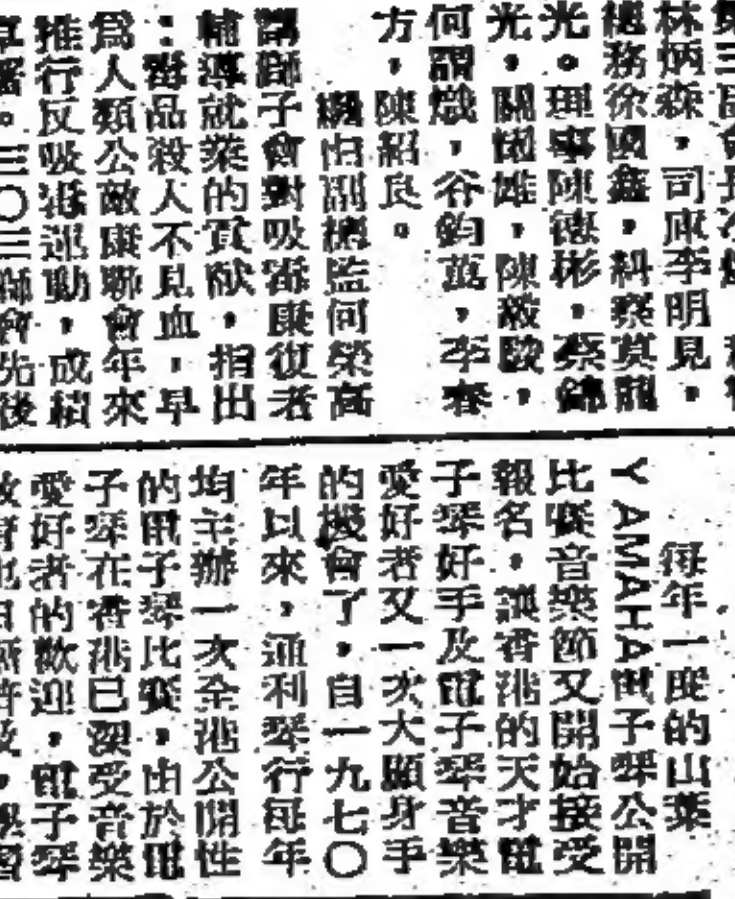 林炳森，司庫李明見，
總務徐國鑫，糾察莫
光。理事陳德彬，蔡錦
光，關國雄，陳啟歐，
何謂熾，谷鈞萬，李春
方，陳紹良。
繼由副總監何榮高
謂獅子會對吸毒康復者
輔導就業的貢献，指出
：毒品殺人不見血，早
為人類公敵康聯會年來
推行反吸毒運動，成績
卓著。三〇三獅會先後
每年一度的山葉
YAMAHA電子琴公開
比賽音樂節又開始接受
報名，讓香港的天才電
子琴好手及電子琴音樂
愛好者又一次大顯身手
的機會了，自一九七〇
年以來，通利琴行每年
均主辦一次全港公開性
的電子琴比賽，由於電
子琴在香港已深受音樂
愛好者的歡迎，電子琴